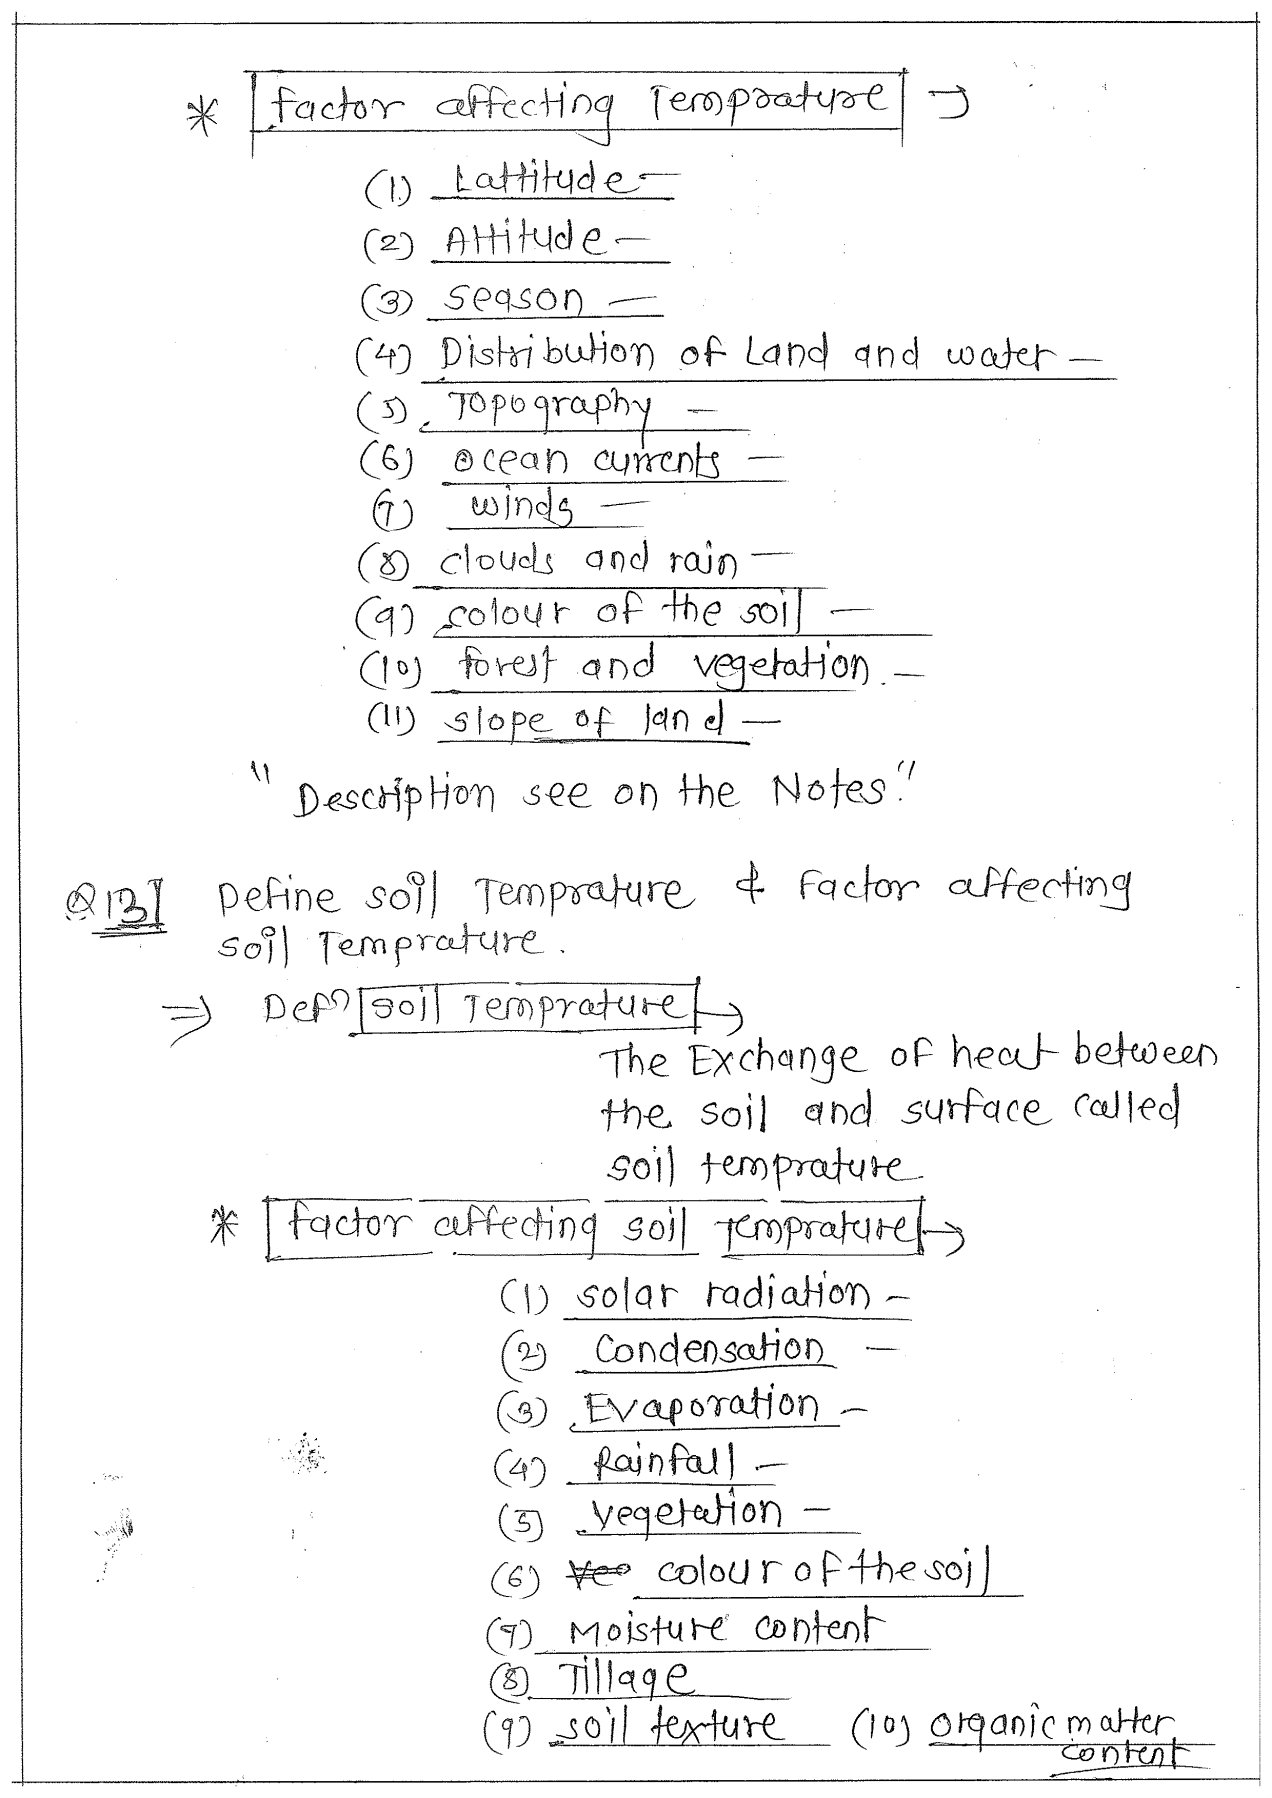 * factor affecting Temprature →
(1) Lattitude –
(2) Attitude –
(3) season –
(4) Distribution of Land and water –
(5) Topography –
(6) ocean currents –
(7) winds –
(8) clouds and rain –
(9) colour of the soil –
(10) forest and vegetation –
(11) slope of land –
" Description see on the Notes."
Q13] Define soil Temprature & Factor affecting
soil Temprature.
⇒ Defn soil Temprature →
The Exchange of heat between
the soil and surface called
soil temprature
* factor affecting soil Temprature →
(1) solar radiation –
(2) Condensation –
(3) Evaporation –
(4) Rainfall –
(5) vegetation –
(6) colour of the soil
(7) Moisture content
(8) Tillage
(9) soil texture (10) organic matter
content